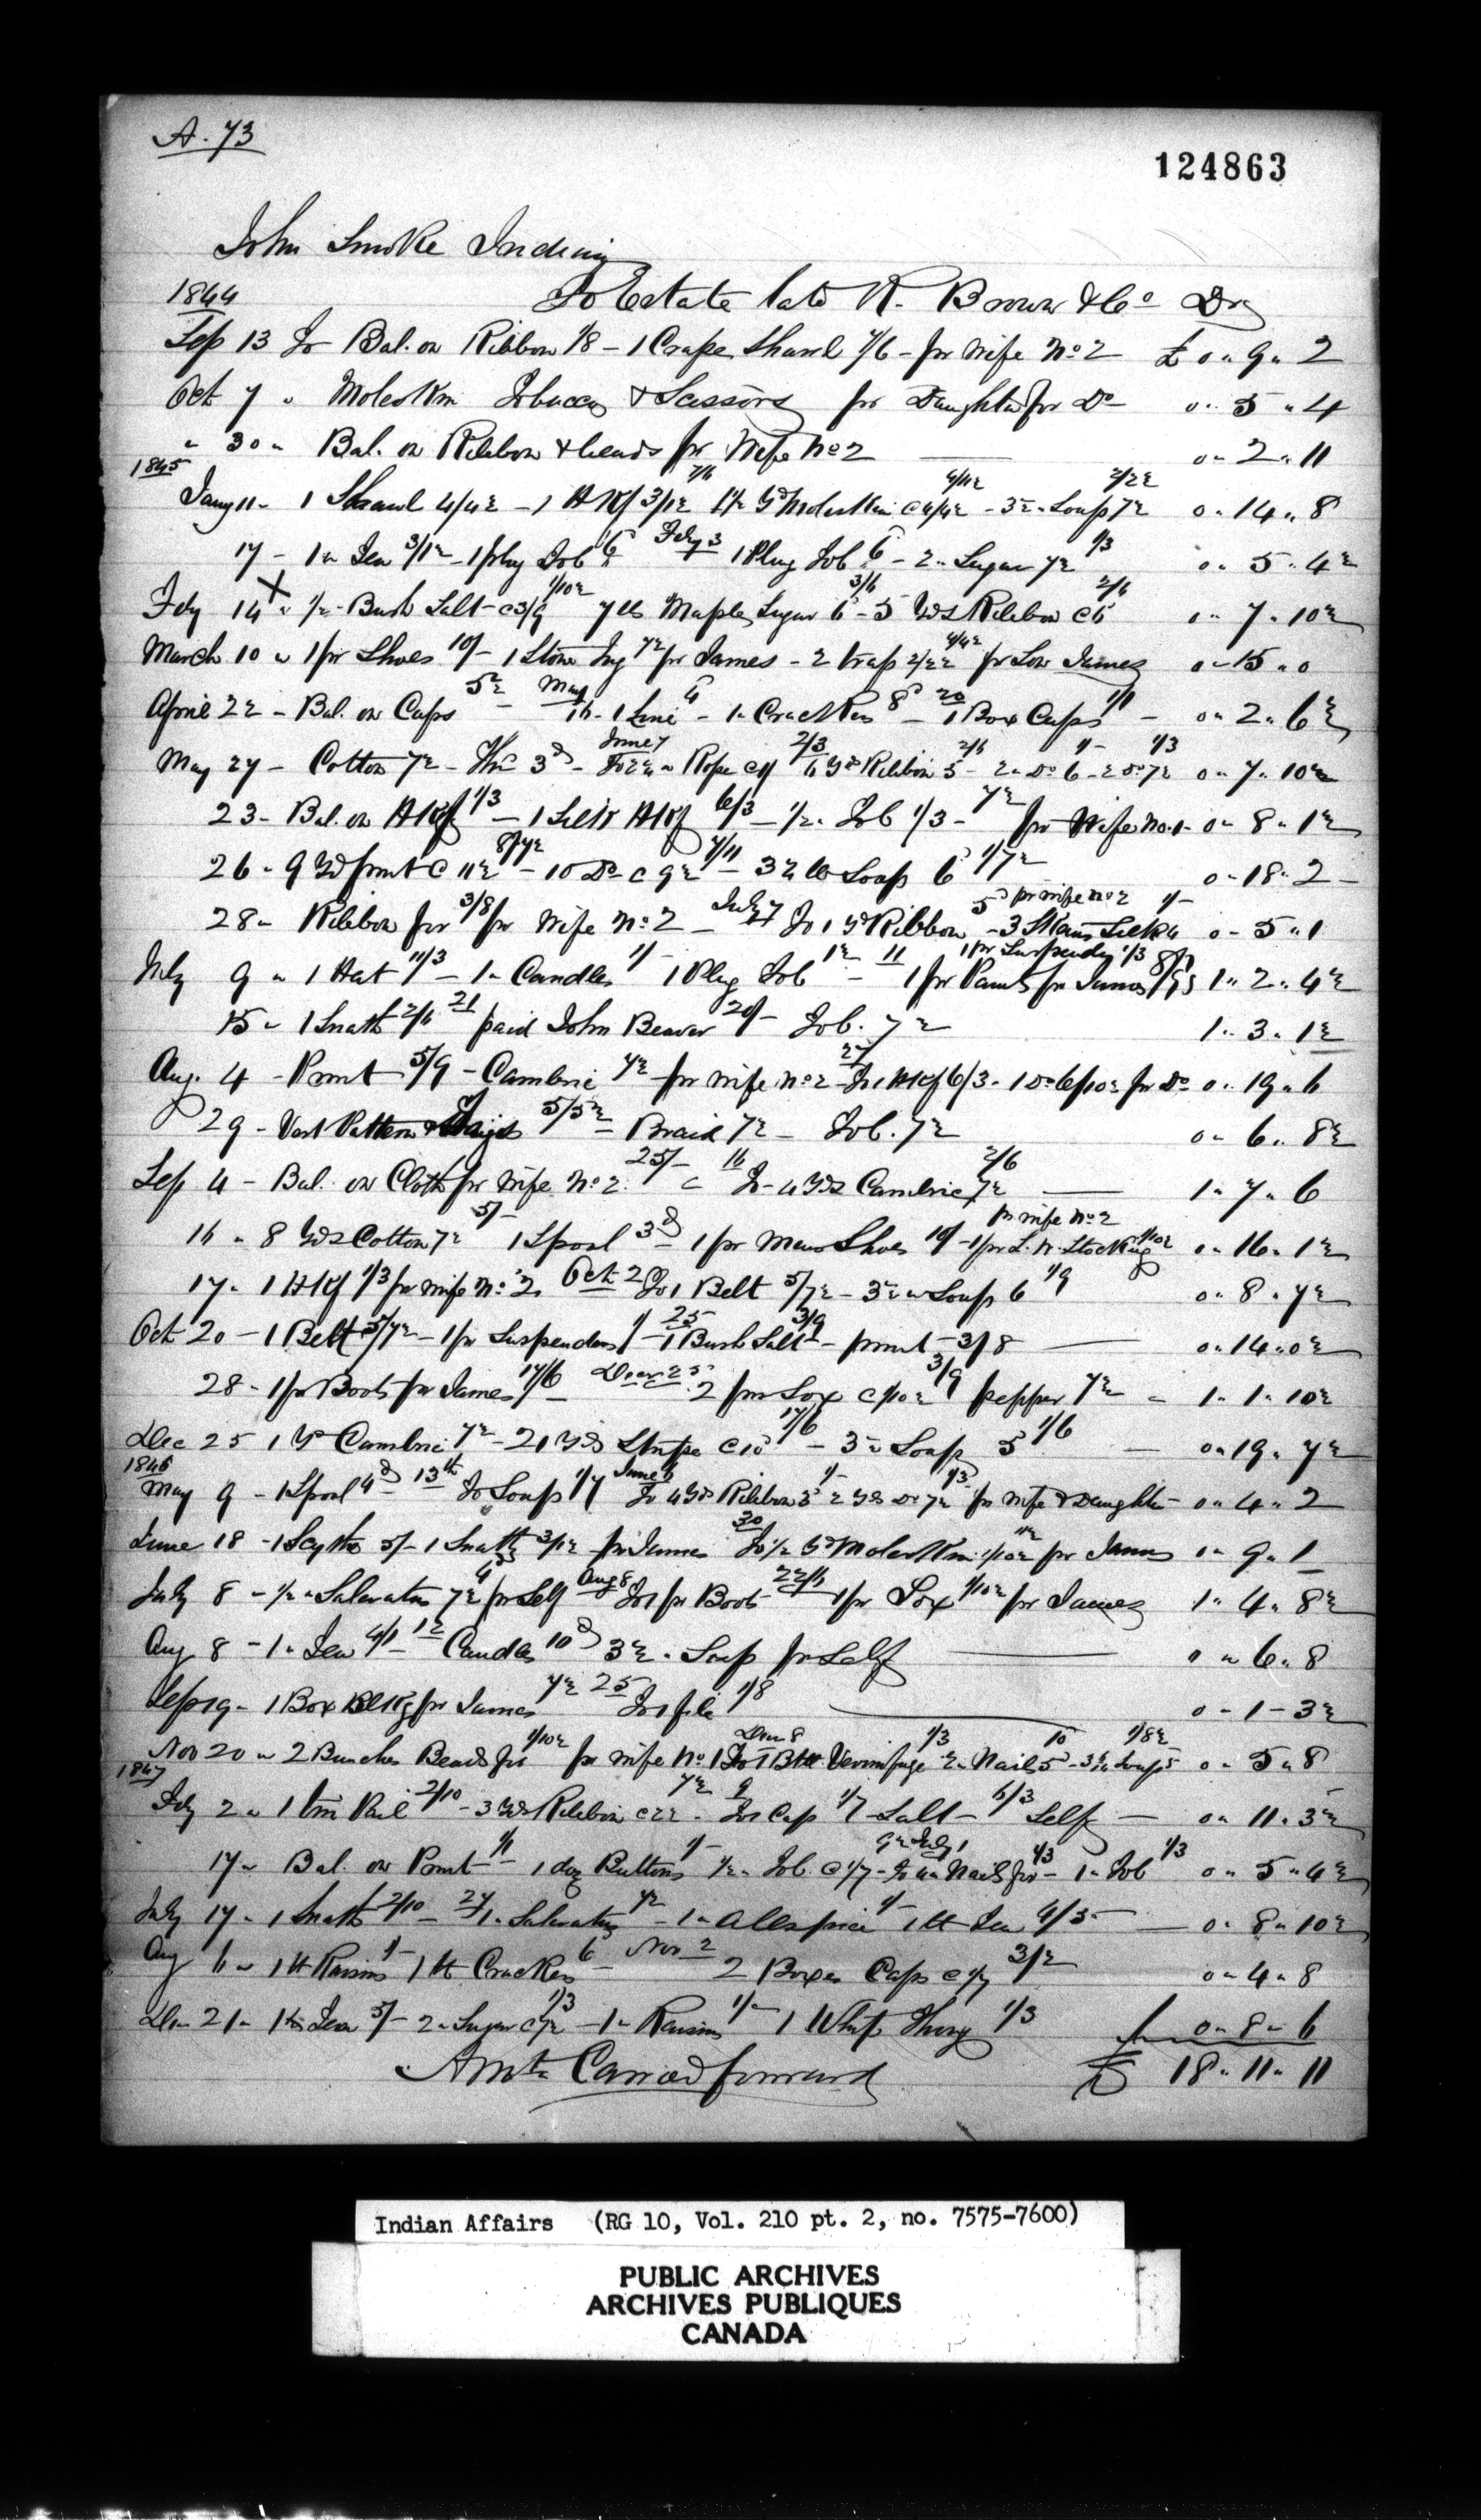 A. 73
124863
John Smoke Indian
1844 To Estate late R. Brown & Co Dr
Sep 13 To Bal. on Ribbon 1/8 - 1 Crape Shawl 7/6 - for Wife No 2 £ 0 " 9 " 2
Oct 7 " Moleskin Tobacco & Scissors for Daughter for Do 0 " 5 " 4
" 30 " Bal. on Ribbon & beads for Wife No 2 0 " 2 " 11
1845
Jany 11 - 1 Shawl 4/4½ - 1 Hkf 3/1½ Yd Moleskin @ 4/4½ - 3½ " Soap 7½ 0 " 14 " 8
17 - 1 " Tea 3/1½ - 1 plug Tob 6 Feby 3 1 Plug Tob 6 - 2 " Sugar 7½ 1/3 0 " 5 " 4½
Feby 14 " ½ " Bush Salt @ 3/9 1/10½ 7 lbs Maple Sugar 6 3/6 - 5 Yds Ribbon @ 6 2/6 0 " 7 " 10½
March 10 " 1 pr Shoes 10/- 1 Stone Jug 7½ for James - 2 traps 2/2½ 4/4½ for Son James 0 " 15 " 0
April 22 - Bal. on Caps 5½ - May 16 - 1 Line 6 - 1 " Crackers 8 - 20 1 Box Caps 1/1 - 0 " 2 " 6½
May 27 - Cotton 7½ - 3d - June 7 To 2¼ " Rope @ 1/ 2/3 6 Yds Ribbon 5 2/6 - 2 " Do 6 1/- - 2 Do 7½ 1/3 0 " 7 " 10½
23 - Bal. on Hkf 1/3 - 1 Silk Hkf 6/3 - ½ " Tob 1/3 - 7½ for Wife No. 1 - 0 " 8 " 1½
26 - 9 Yd print @ 11½ 8/7½ - 10 Do @ 9½ 7/11 - 3½ lb Soap 6 1/7½ 0 - 18 " 2 -
28 " Ribbon for 3/8 for Wife No 2 - July 7 To 1 Yd Ribbon 5d for wife No 2 - 3 Skains Silk 4 1/- 0 - 5 " 1
July 9 " 1 Hat 11/3 - 1 " Candles 1/- 1 Plug Tob 1½ - 11 1 pr Pants for James 1 pr Suspenders 1/3 1 " 2 " 4½
15 " 1 Snath 2/6 21 paid John Beaver 20/- Tob. 7½ 1 " 3 " 1½
Aug. 4 - Print 5/9 - Cambric 7½ for wife No 2 - 27 To 1 Hkf 6/3 - 1 Do 6/10½ for Do 0 " 19 " 6
29 - Vest Pattern & 5/5½ - Braid 7½ - Tob. 7½ 0 " 6 " 8½
Sep 4 - Bal. on Cloth for Wife No 2. 25/- " 16 To - 4 Yds Cambric 7½ 2/6 1 " 7 " 6
16 " 8 Yds Cotton 7½ 5/- 1 Spool 3d - 1 pr Mens Shoes 10/- 1 pr L. W. Stocking 1/10½ for wife No 2 0 " 16 " 1½
17 " 1 Hkf 1/3 for wife No 2, Oct 2 To 1 Belt 5/7½ - 3½ " Soap 6 1/9 0 " 8 " 7½
Oct 20 - 1 Belt 5/7½ - 1 pr Suspenders 1/ - 25 1 Bush Salt 3/9 - print - 3/8 0 " 14 " 0½
28 - 1 pr Boots for James 17/6 Decr 25 2 pr Sox @ 1/10½ 3/9 pepper 7½ - 1 " 1 " 10½
Dec 25 1 Yd Cambric 7½ - 21 Yds Stripe @ 10 17/6 - 3½ Soap 5 1/6 - 0 " 19 " 7½
1846
May 9 - 1 Spool 4d 13th To Soap 1/7 June 6 To 4 Yds Ribbon 3 1/- 2 Yds Do 7½ 1/3 for wife & Daughter - 0 " 4 " 2
June 18 - 1 Scythe 5/- 1 Snath 3/1½ for James 30 To ½ Yd Moleskin 1/10½ 11½ for James 0 " 9 " 1
July 8 - ½ " Saleratus 7½ for Self Aug 8 To 1 pr Boots 22/6 1 pr Sox 1/10½ for James 1 " 4 " 8½
Aug 8 - 1 " Tea 4/1 12 Candles 10d 3½ " Soap for Self 0 " 6 " 8
Sep 19 - 1 Box Blkg for James 7½ 25 To 1 file 1/8 0 - 1 - 3½
Nov 20 " 2 Bunches Beads for 1/10½ for Wife No. 1 Decr 8 To 1 Bttl Vermifuge 1/3 2 " Nails 5 10 - 3½ " Soap 5 1/8½ 0 " 5 " 8
1847
Feby 2 " 1 tin Pail 2/10 - 3 Yds Ribbon @ 2½ 7½ - 9 To 1 Cap 1/7 - Salt - 6/3 Self - 0 " 11 " 3½
17 " Bal. on Print 1/1 - 1 doz Buttons 1/- ½ " Tob. @ 1/7 - 9½ July 1 To 4 " Nails for 1/3 - 1 " Tob 1/3 0 " 5 " 4½
July 17 " 1 Snath 2/10 - 27 1 " Saleratus 7½ - 1 " Allspice 1/- 1 lb Tea 4/3 - 0 " 8 " 10½
Aug 6 " 1 lb Raisins 1/- 1 lb Crackers 6 - Nov 2 2 Boxes Caps @ 1/7 3/2 0 " 4 " 8
Dec 21 " 1 lb Tea 5/- 2 " Sugar @ 7½ 1/3 - 1 " Raisins 1/- 1 Whip Thong 1/3 0 " 8 " 6
Amt Carried forward £ 18 " 11 " 11
Indian Affairs (RG 10, Vol. 210 pt. 2, no. 7575-7600)
PUBLIC ARCHIVES
ARCHIVES PUBLIQUES
CANADA